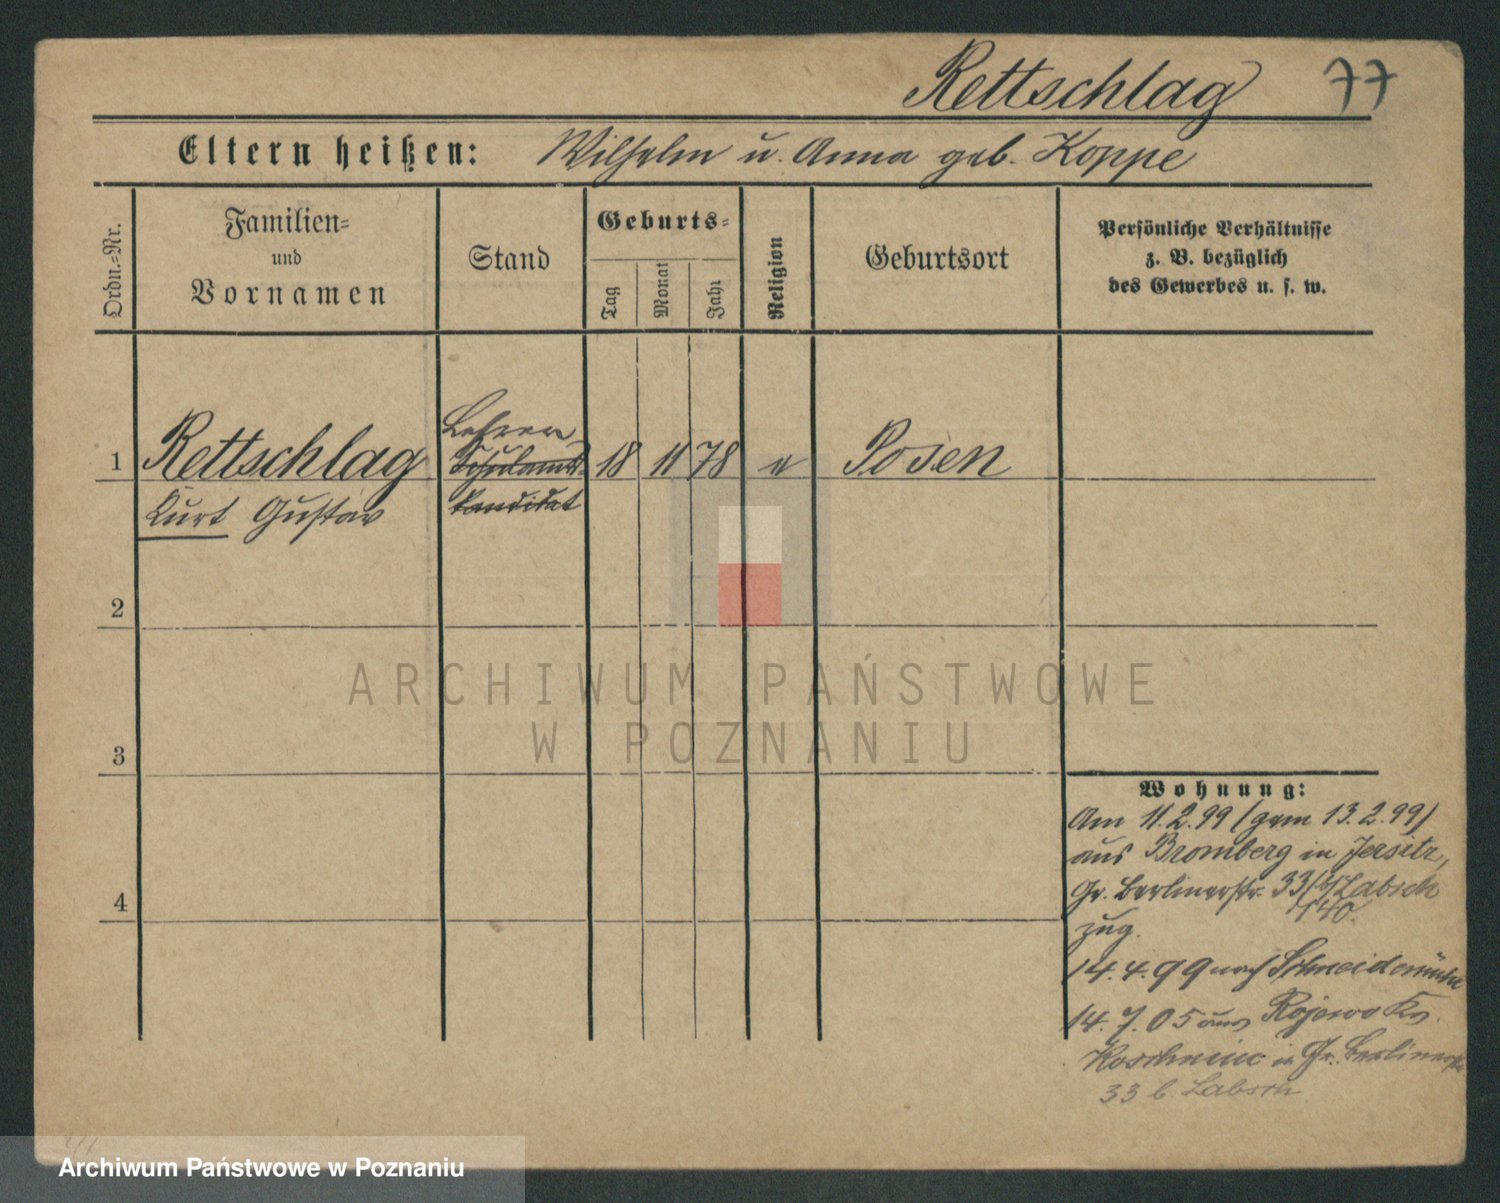 Rettschlag 77
Eltern heißen: Wilhelm u. Anna geb. Koppe
Ordn.=Nr.
Familien=
und
Vornamen
Stand
Geburts=
Tag
Monat
Jahr
Religion
Geburtsort
Persönliche Verhältnisse
z. B. bezüglich
des Gewerbes u. s. w.
1 Rettschlag
Kurt Gustav
Lehrer
Schulamts=
kandidat
18 11 78 Posen
2
3
4
ARCHIWUM PAŃSTWOWE
W POZNANIU
Wohnung:
Am 11.2.99 (gem 13.2.99)
aus Bromberg in Jersitz,
Gr. Berlinerstr. 33/b/Labsch
zug.
14.4.99 nach Schneidemühl
14.7.05 aus Rojewo Krs.
Koschmin in Gr. Berlinerstr
33 b Labsch
Archiwum Państwowe w Poznaniu